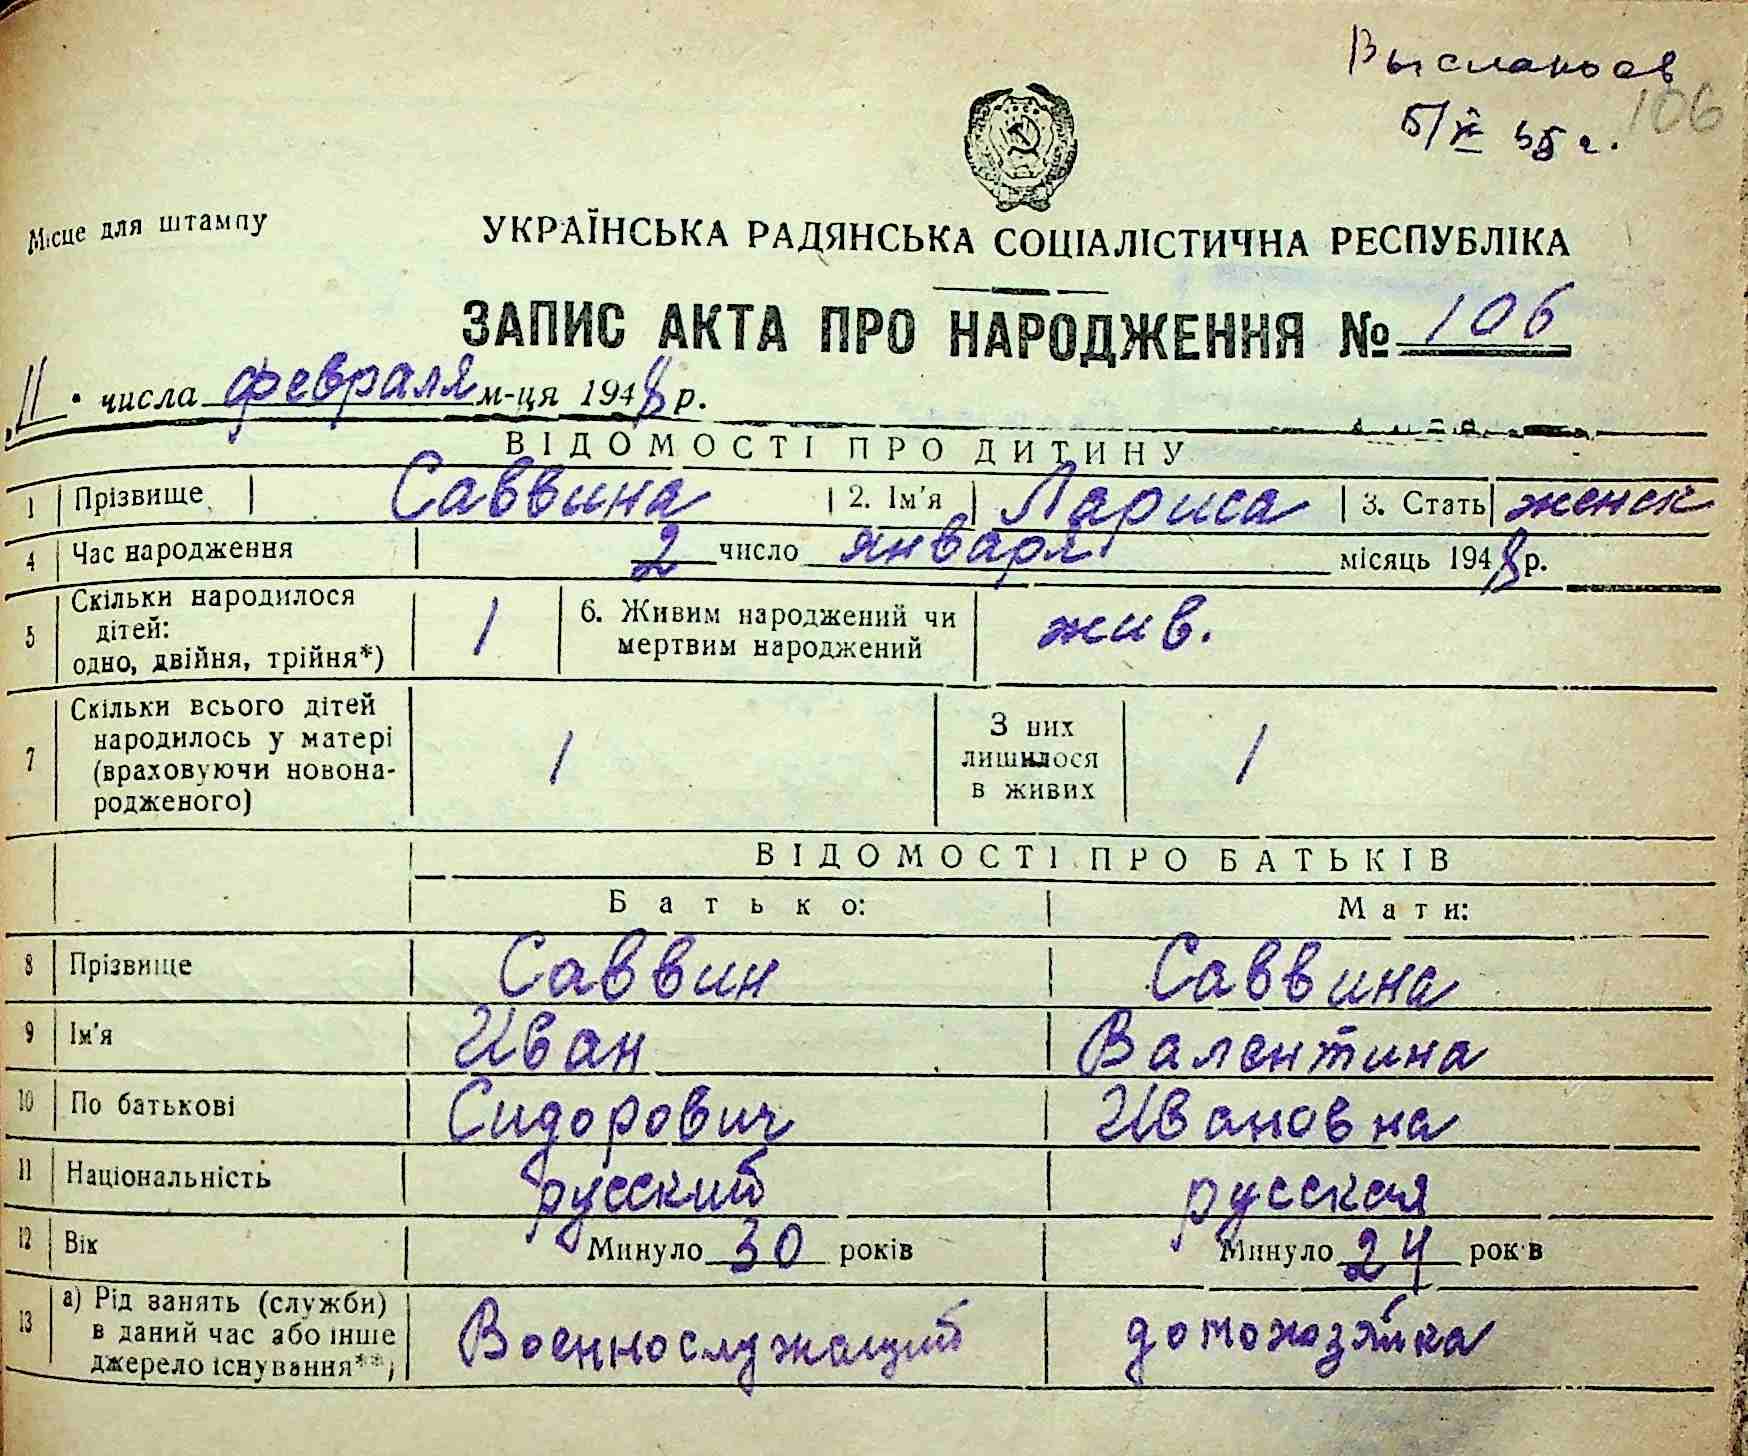 106
Місце для штампу
УКРАЇНСЬКА РАДЯНСЬКА СОЦІАЛІСТИЧНА РЕСПУБЛІКА
ЗАПИС АКТА ПРО НАРОДЖЕННЯ № 106
11 числа февраля м-ця 1948 р.
ВІДОМОСТІ ПРО ДИТИНУ
1 Прізвище Саввина 2. Ім'я Лариса 3. Стать женск
4 Час народження 2 число января місяць 1948 р.
5 Скільки народилося дітей: одно, двійня, трійня*) 1 6. Живим народжений чи мертвим народжений жив.
7 Скільки всього дітей народилось у матері (враховуючи новонародженого) 1 З них лишилося в живих 1
ВІДОМОСТІ ПРО БАТЬКІВ
Батько: Мати:
8 Прізвище Саввин Саввина
9 Ім'я Иван Валентина
10 По батькові Сидорович Ивановна
11 Національність русский русская
12 Вік Минуло 30 років Минуло 24 років
13 а) Рід занять (служби) в даний час або інше джерело існування**) Военнослужащий домохозяйка